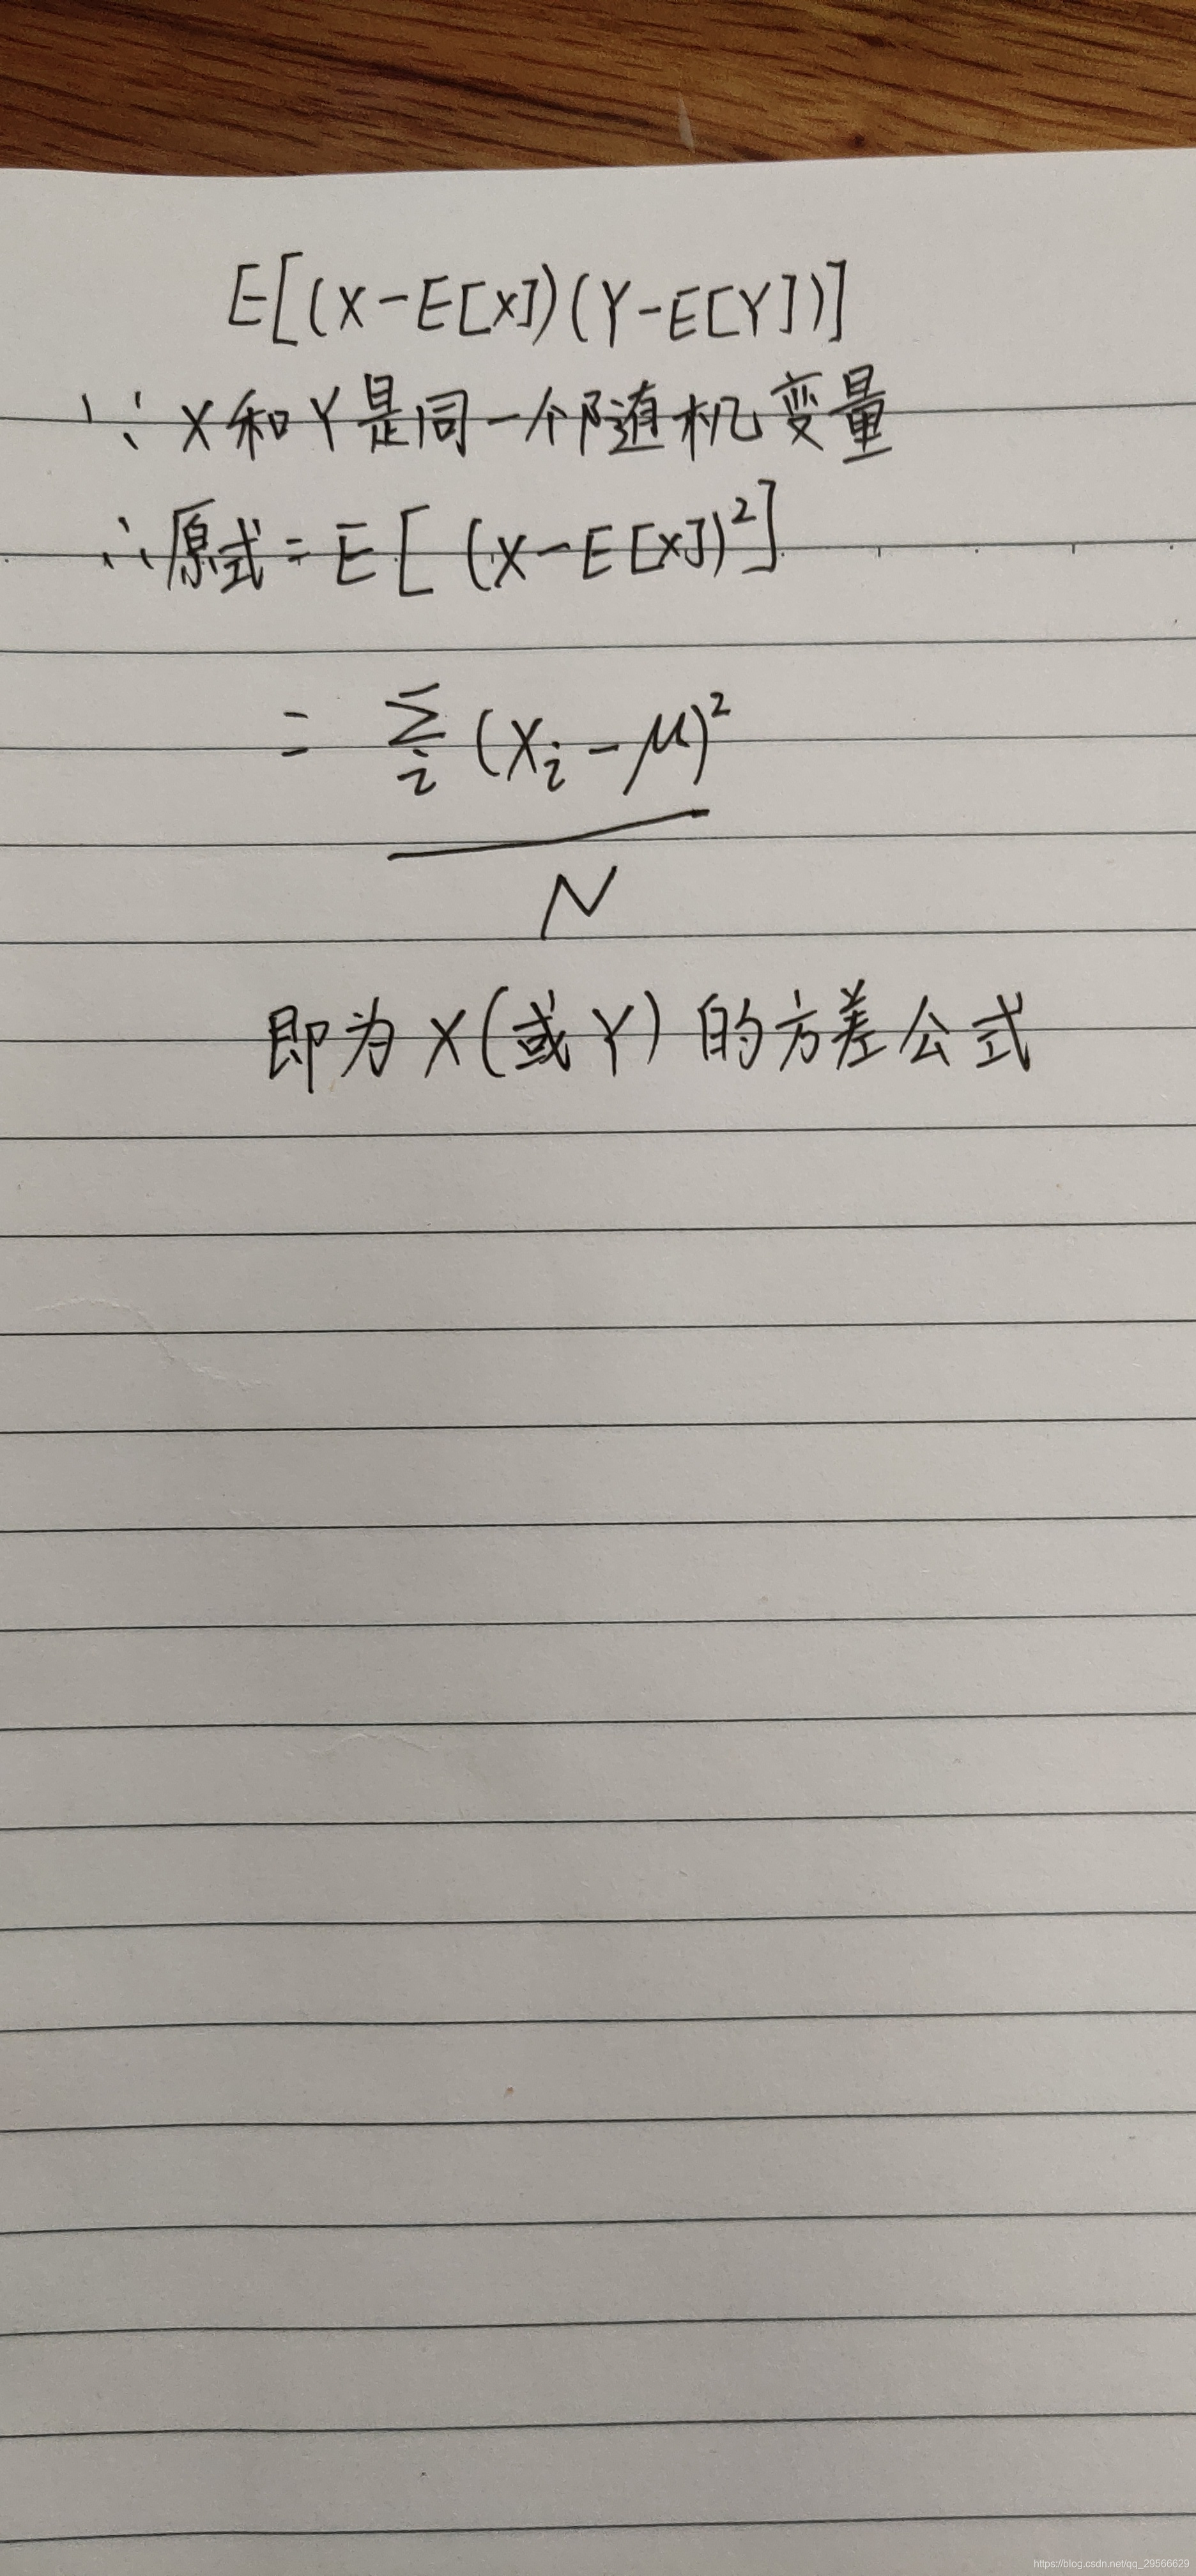 E[(X-E[X])(Y-E[Y])]
∵ X和Y是同一个随机变量
∴原式=E[(X-E[X])²]
= Σᵢ(Xᵢ-μ)²
N
即为X(或Y)的方差公式
https://blog.csdn.net/qq_29566629